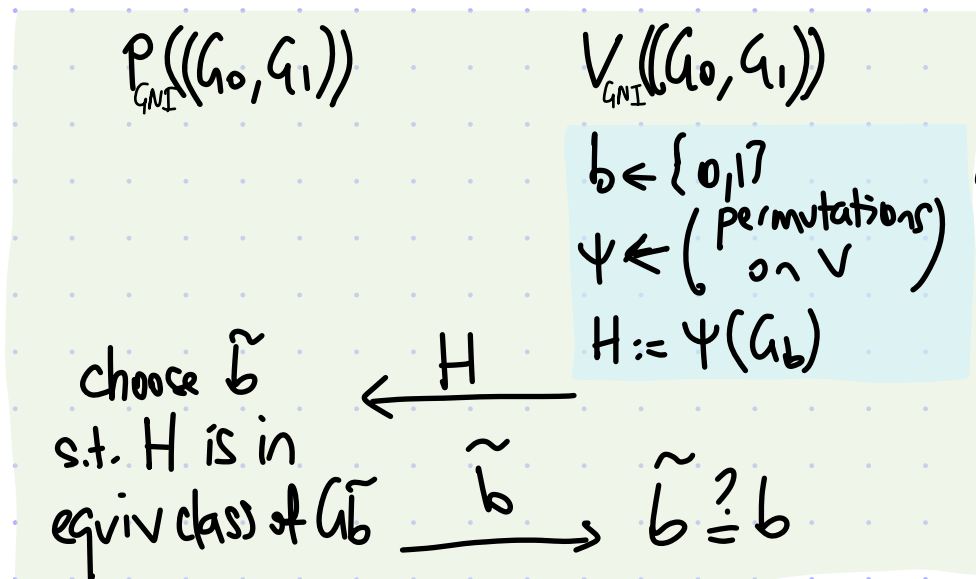 P_GNI((G₀, G₁)) V_GNI((G₀, G₁))
b ← {0,1}
ψ ← (permutations
on V)
H := ψ(G_b)
H
choose b̃
s.t. H is in
equiv class of G_b̃
b̃
b̃ ≟ b